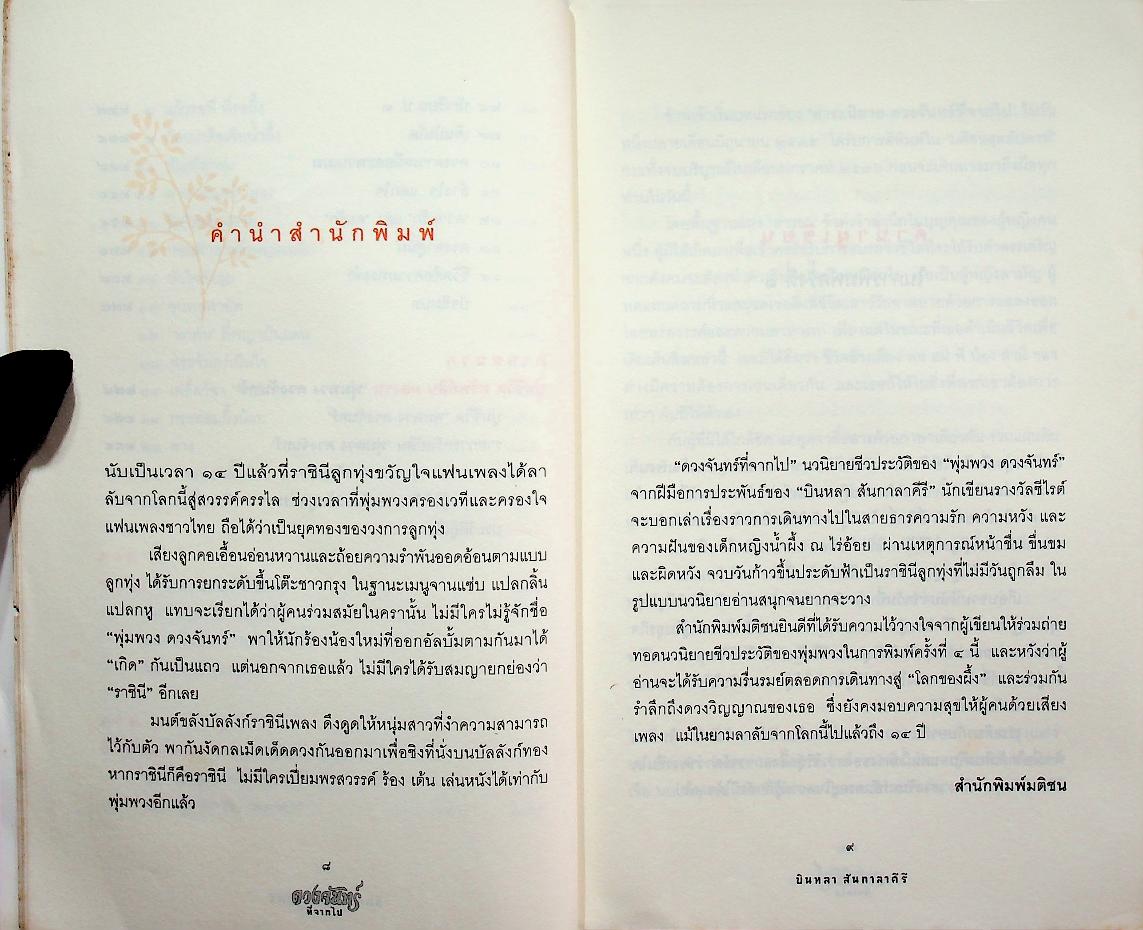 คำนำสำนักพิมพ์
นับเป็นเวลา ๑๔ ปีแล้วที่ราชินีลูกทุ่งขวัญใจแฟนเพลงได้ลา
ลับจากโลกนี้สู่สวรรค์ครรไล ช่วงเวลาที่พุ่มพวงครองเวทีและครองใจ
แฟนเพลงชาวไทย ถือได้ว่าเป็นยุคทองของวงการลูกทุ่ง
เสียงลูกคอเอื้อนอ่อนหวานและถ้อยความรำพันออดอ้อนตามแบบ
ลูกทุ่ง ได้รับการยกระดับขึ้นโต๊ะชาวกรุง ในฐานะเมนูจานแซ่บ แปลกลิ้น
แปลกหู แทบจะเรียกได้ว่าผู้คนร่วมสมัยในครานั้น ไม่มีใครไม่รู้จักชื่อ
“พุ่มพวง ดวงจันทร์” พาให้นักร้องน้องใหม่ที่ออกอัลบั้มตามกันมาได้
“เกิด” กันเป็นแถว แต่นอกจากเธอแล้ว ไม่มีใครได้รับสมญายกย่องว่า
“ราชินี” อีกเลย
มนต์ขลังบัลลังก์ราชินีเพลง ดึงดูดให้หนุ่มสาวที่งำความสามารถ
ไว้กับตัว พากันงัดกลเม็ดเด็ดดวงกันออกมาเพื่อชิงที่นั่งบนบัลลังก์ทอง
หากราชินีก็คือราชินี ไม่มีใครเปี่ยมพรสวรรค์ ร้อง เต้น เล่นหนังได้เท่ากับ
พุ่มพวงอีกแล้ว
๘
ดวงจันทร์
ที่จากไป
“ดวงจันทร์ที่จากไป” นวนิยายชีวประวัติของ “พุ่มพวง ดวงจันทร์”
จากฝีมือการประพันธ์ของ “บินหลา สันกาลาคีรี” นักเขียนรางวัลซีไรต์
จะบอกเล่าเรื่องราวการเดินทางไปในสายธารความรัก ความหวัง และ
ความฝันของเด็กหญิงน้ำผึ้ง ณ ไร่อ้อย ผ่านเหตุการณ์หน้าชื่น ขื่นขม
และผิดหวัง จวบวันก้าวขึ้นประดับฟ้าเป็นราชินีลูกทุ่งที่ไม่มีวันถูกลืม ใน
รูปแบบนวนิยายอ่านสนุกจนยากจะวาง
สำนักพิมพ์มติชนยินดีที่ได้รับความไว้วางใจจากผู้เขียนให้ร่วมถ่าย
ทอดนวนิยายชีวประวัติของพุ่มพวงในการพิมพ์ครั้งที่ ๔ นี้ และหวังว่าผู้
อ่านจะได้รับความรื่นรมย์ตลอดการเดินทางสู่ “โลกของผึ้ง” และร่วมกัน
รำลึกถึงดวงวิญญาณของเธอ ซึ่งยังคงมอบความสุขให้ผู้คนด้วยเสียง
เพลง แม้ในยามลาลับจากโลกนี้ไปแล้วถึง ๑๔ ปี
สำนักพิมพ์มติชน
๙
บินหลา สันกาลาคีรี